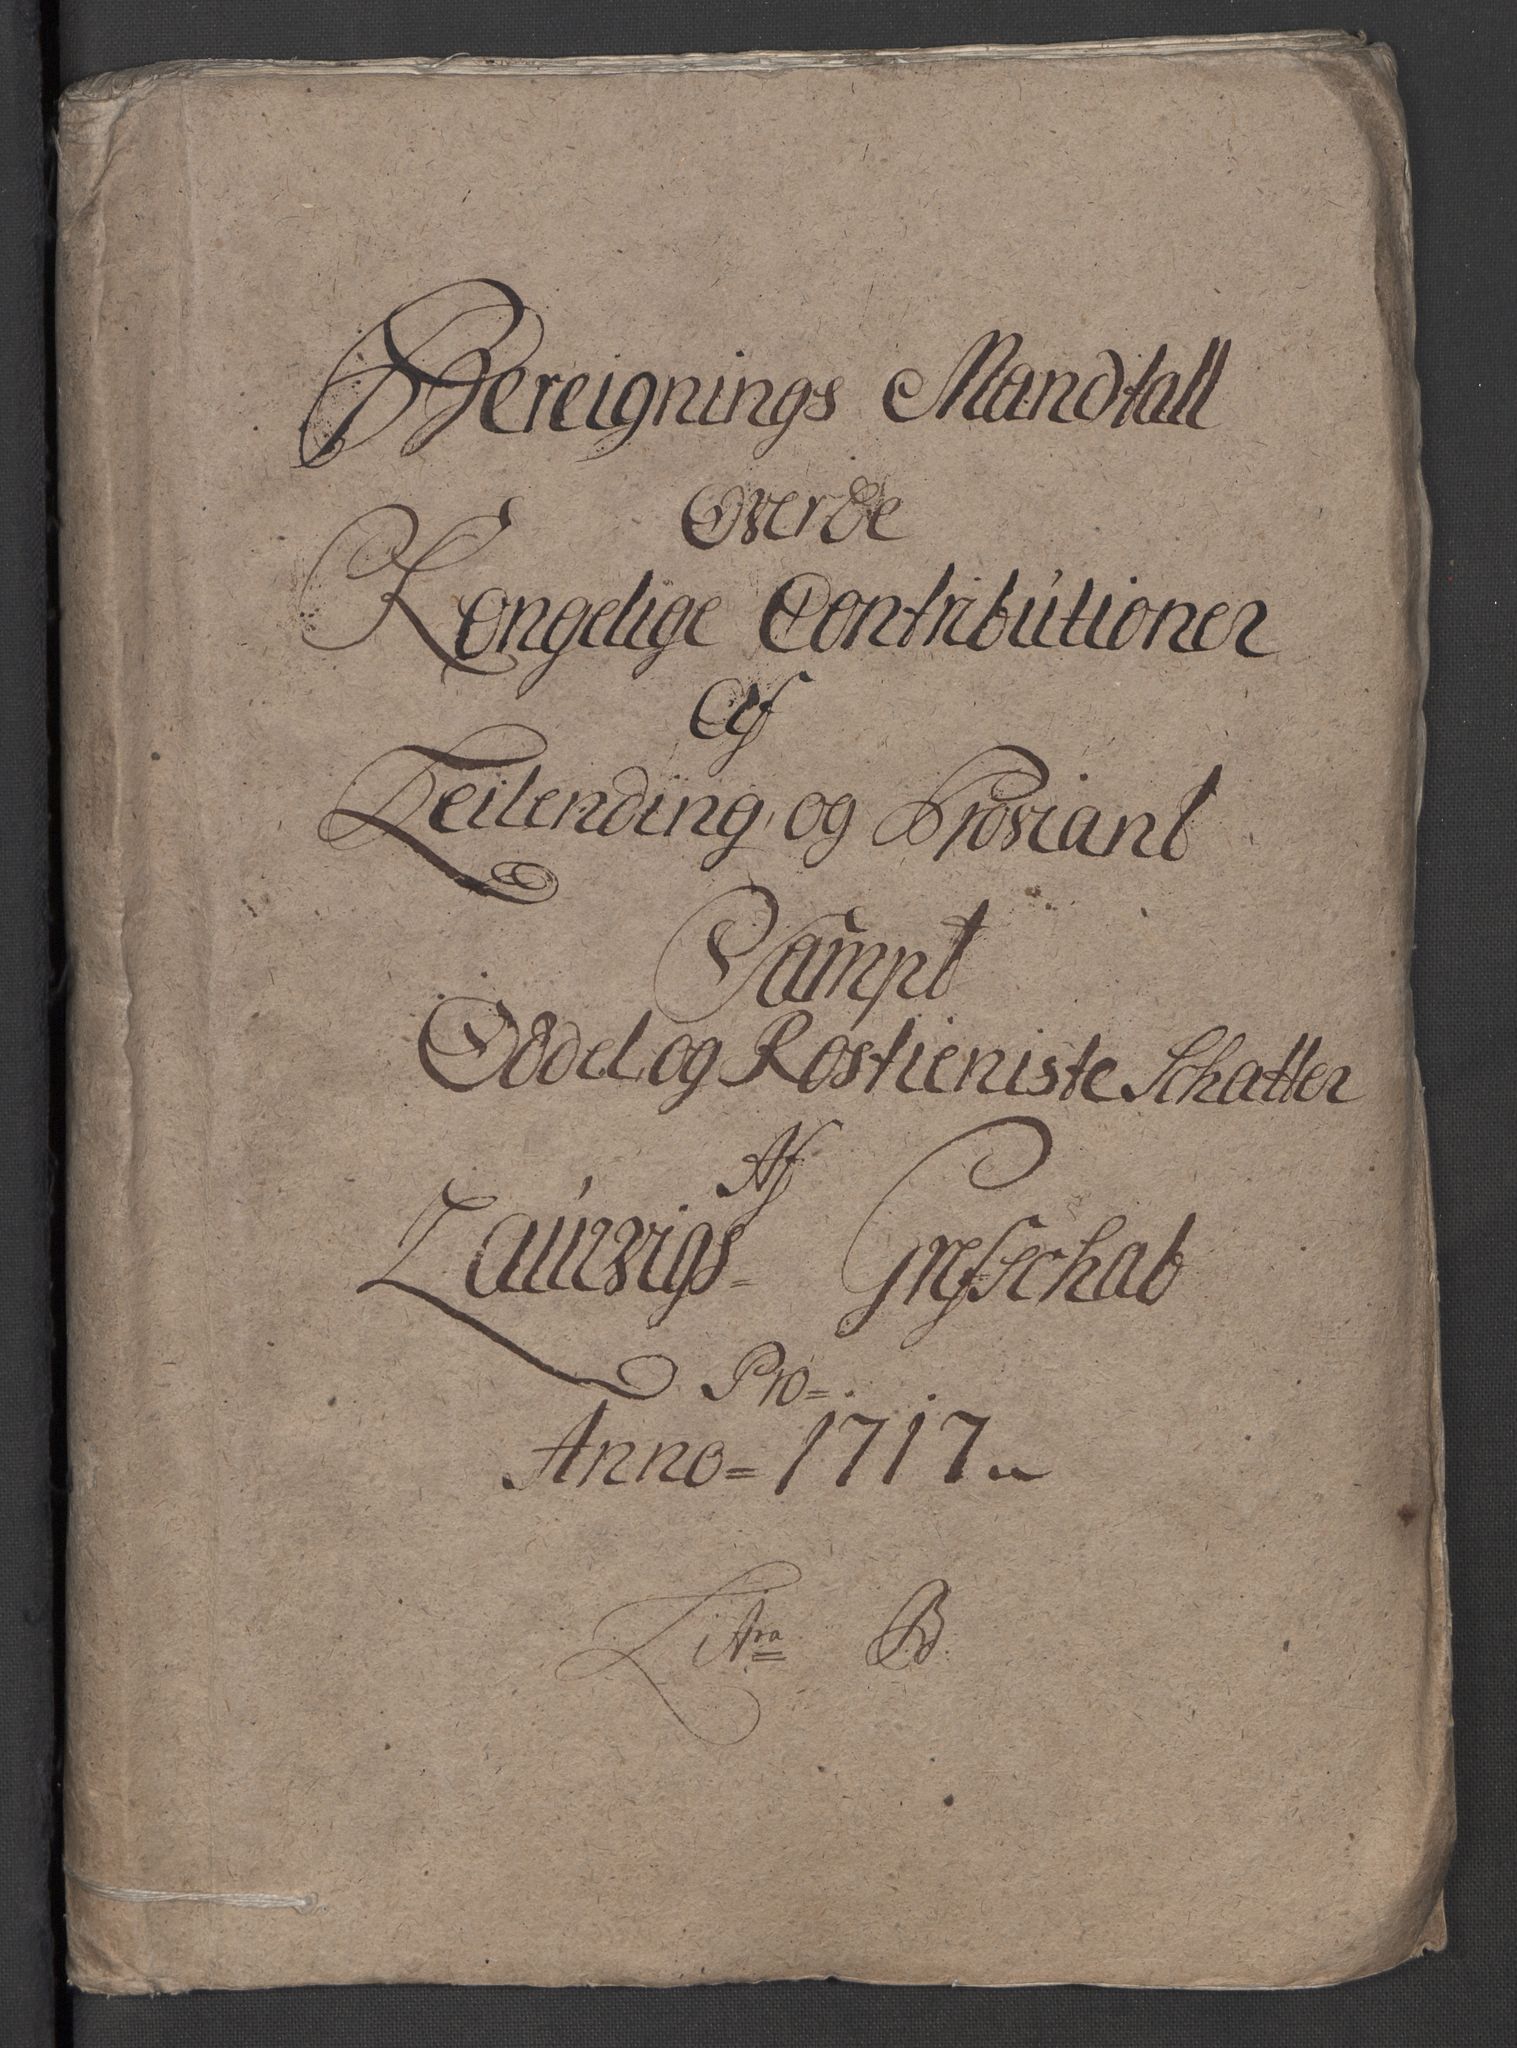 Bereignings Mandtall
Over de
Kongelige Contributioner
Af
Leilending og Proviant
Sampt
Oddel og Rostieniste Schatter
Af
Laurvigs- Grefschab
Pro=
Anno= 1717
Litra B